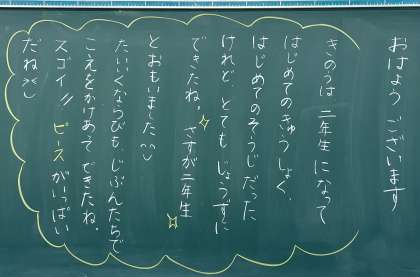 おはよう ございます
きのうは 二年生 になって
はじめての きゅうしょく、
はじめてのそうじだった
けれど、とても じょうずに
できたね。 さすが二年生
とおもいました^^
たいいくならびも、じぶんたちで
こえをかけあて できたね。
スゴイ!! ピースがいっぱい
だね><